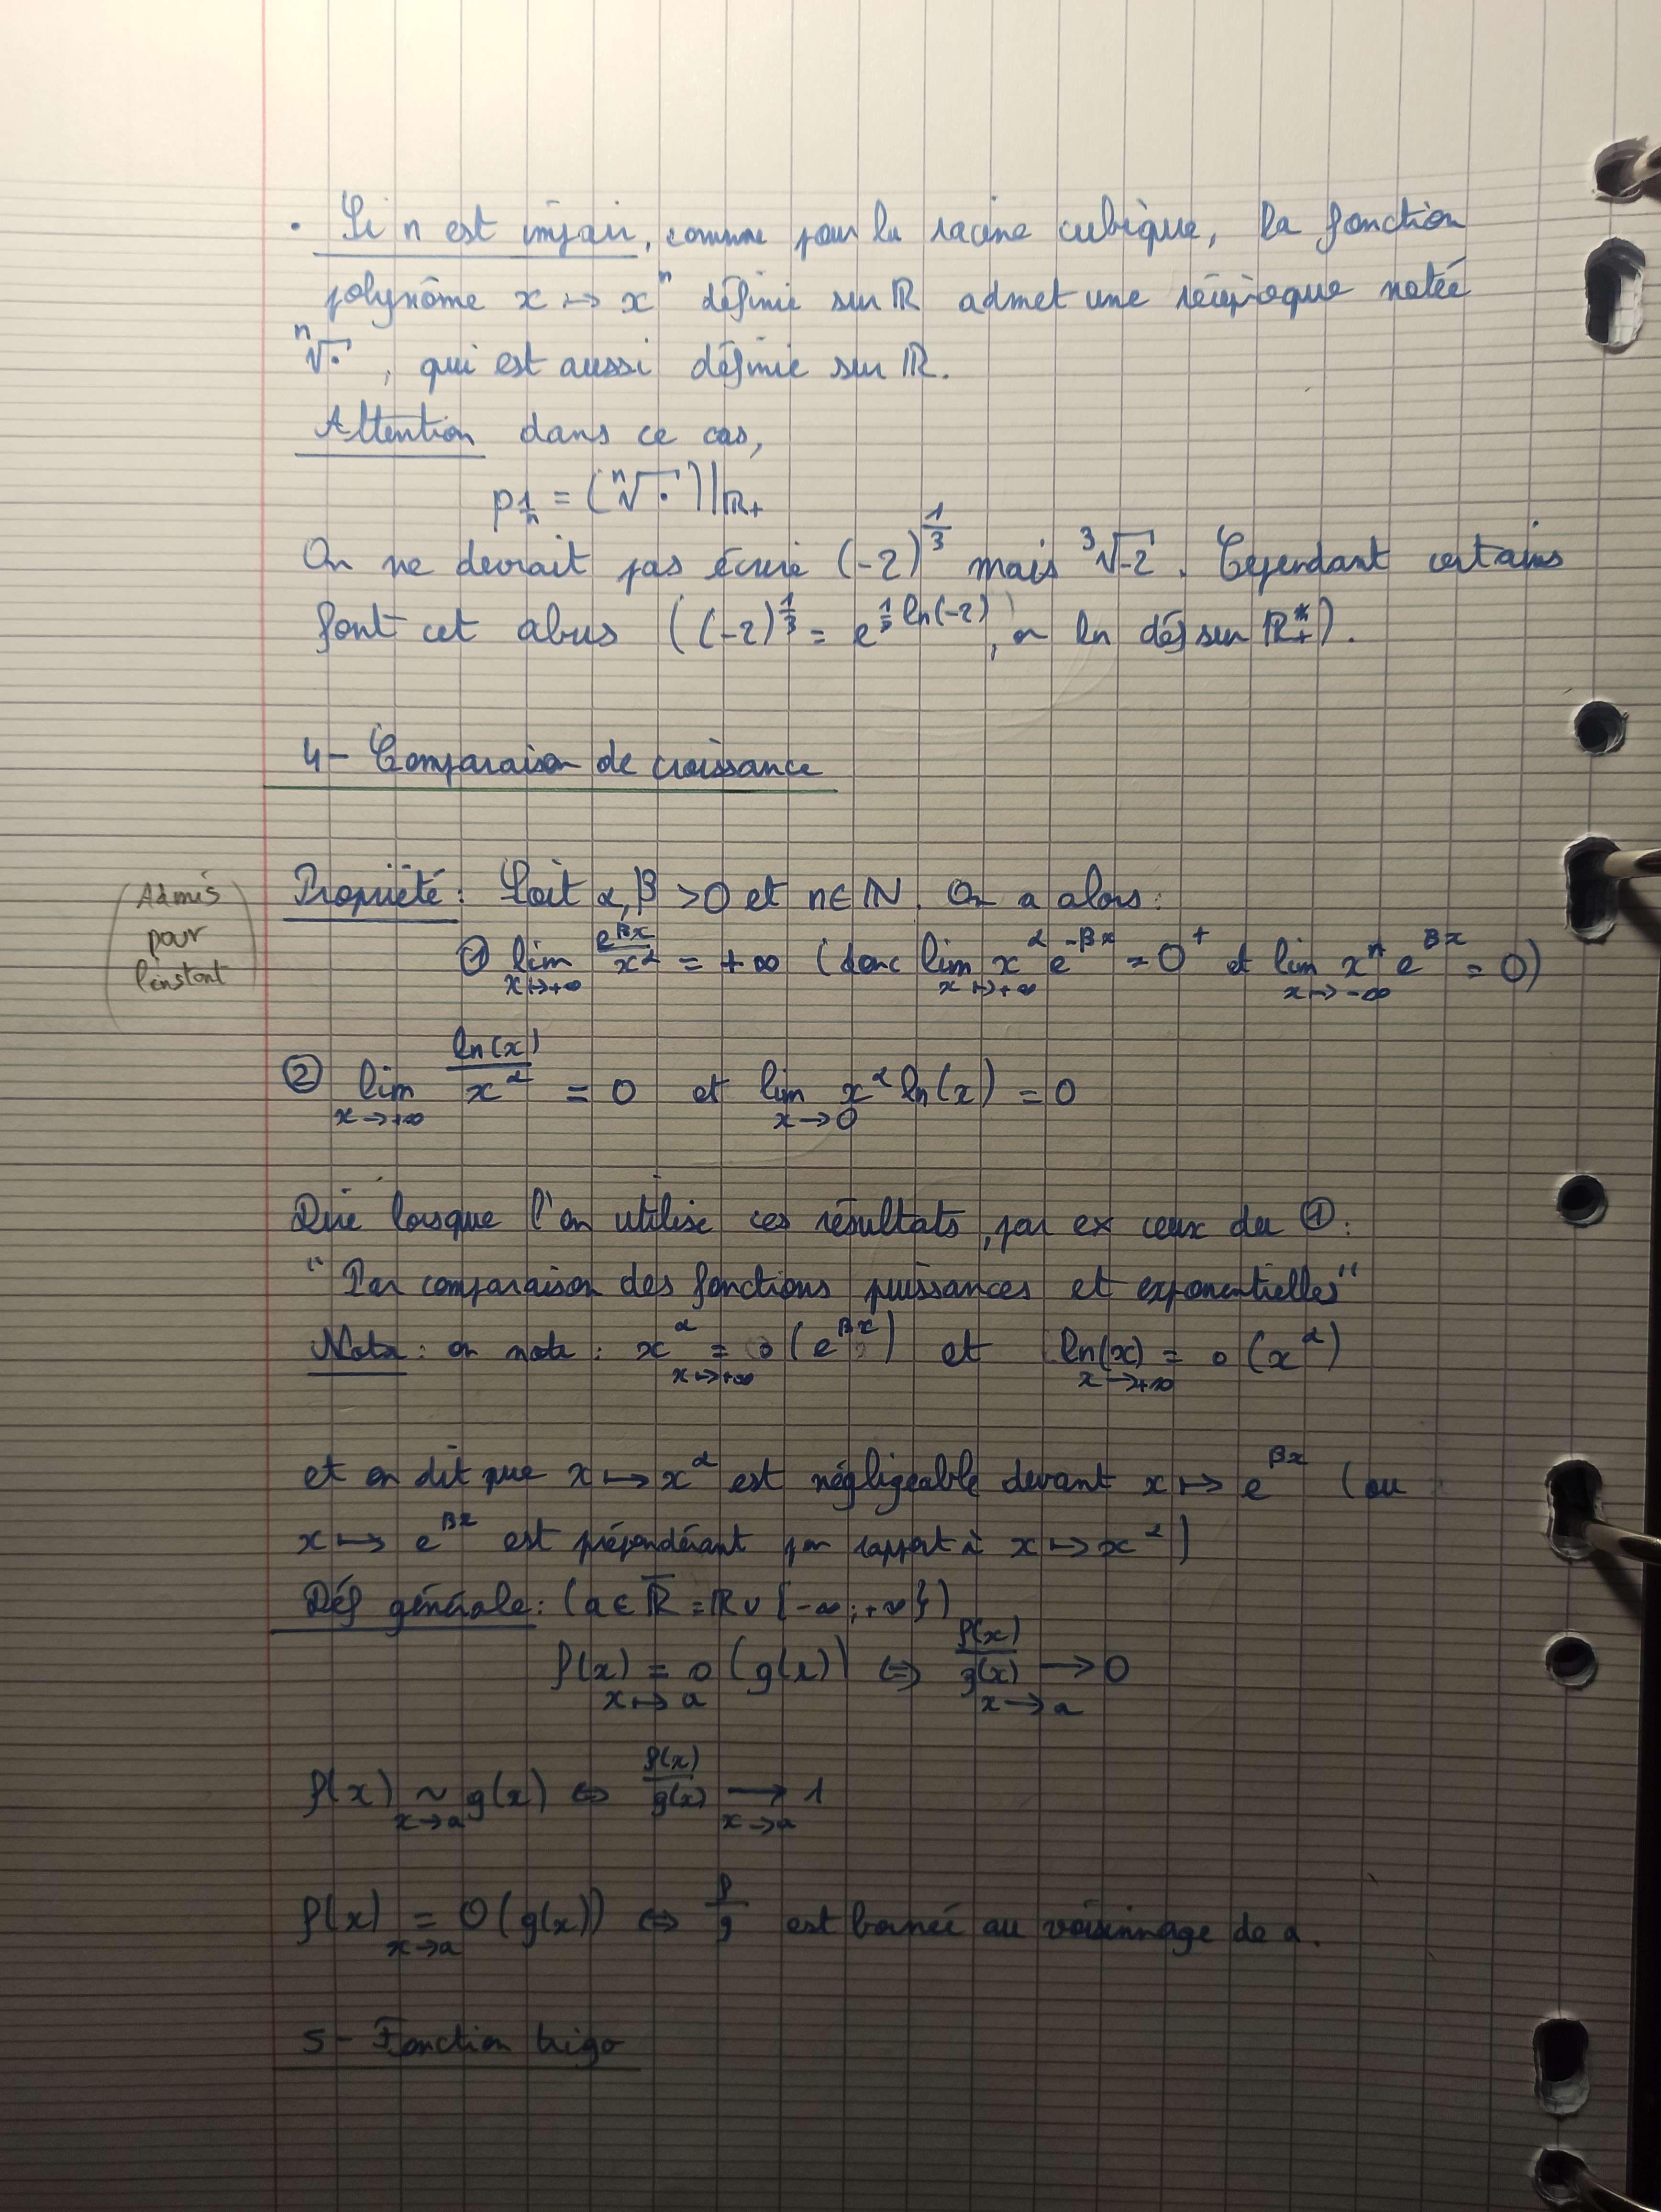 • Si n est impair, comme pour la racine cubique, la fonction
polynôme x ↦ xⁿ définie sur ℝ admet une réciproque notée
ⁿ√· , qui est aussi définie sur ℝ.
Attention dans ce cas,
p_{1/n} = (ⁿ√·)|ℝ₊
On ne devrait pas écrire (-2)^{1/3} mais ³√-2. Cependant certains
font cet abus ((-2)^{1/3} = e^{1/3 ln(-2)}, or ln déf sur ℝ₊*).
4- Comparaison de croissance
(Admis
pour
l'instant)
Propriété : Soit α, β > 0 et n ∈ ℕ. On a alors :
① lim_{x↦+∞} e^{βx}/x^α = +∞ (donc lim_{x↦+∞} x^α e^{-βx} = 0⁺ et lim_{x↦-∞} xⁿ e^{βx} = 0)
② lim_{x→+∞} ln(x)/x^α = 0 et lim_{x→0} x^α ln(x) = 0
Dire lorsque l'on utilise ces résultats, par ex ceux du ① :
"Par comparaison des fonctions puissances et exponentielles"
Nota : on note : x^α =_{x↦+∞} o(e^{βx}) et ln(x) =_{x→+∞} o(x^α)
et on dit que x ↦ x^α est négligeable devant x ↦ e^{βx} (ou
x ↦ e^{βx} est prépondérant par rapport à x ↦ x^α)
Déf générale : (a ∈ ℝ̅ = ℝ ∪ {-∞ ; +∞})
f(x) =_{x↦a} o(g(x)) ⇔ f(x)/g(x) →_{x→a} 0
f(x) ~_{x→a} g(x) ⇔ f(x)/g(x) →_{x→a} 1
f(x) =_{x→a} O(g(x)) ⇔ f/g est bornée au voisinnage de a.
5- Fonction trigo